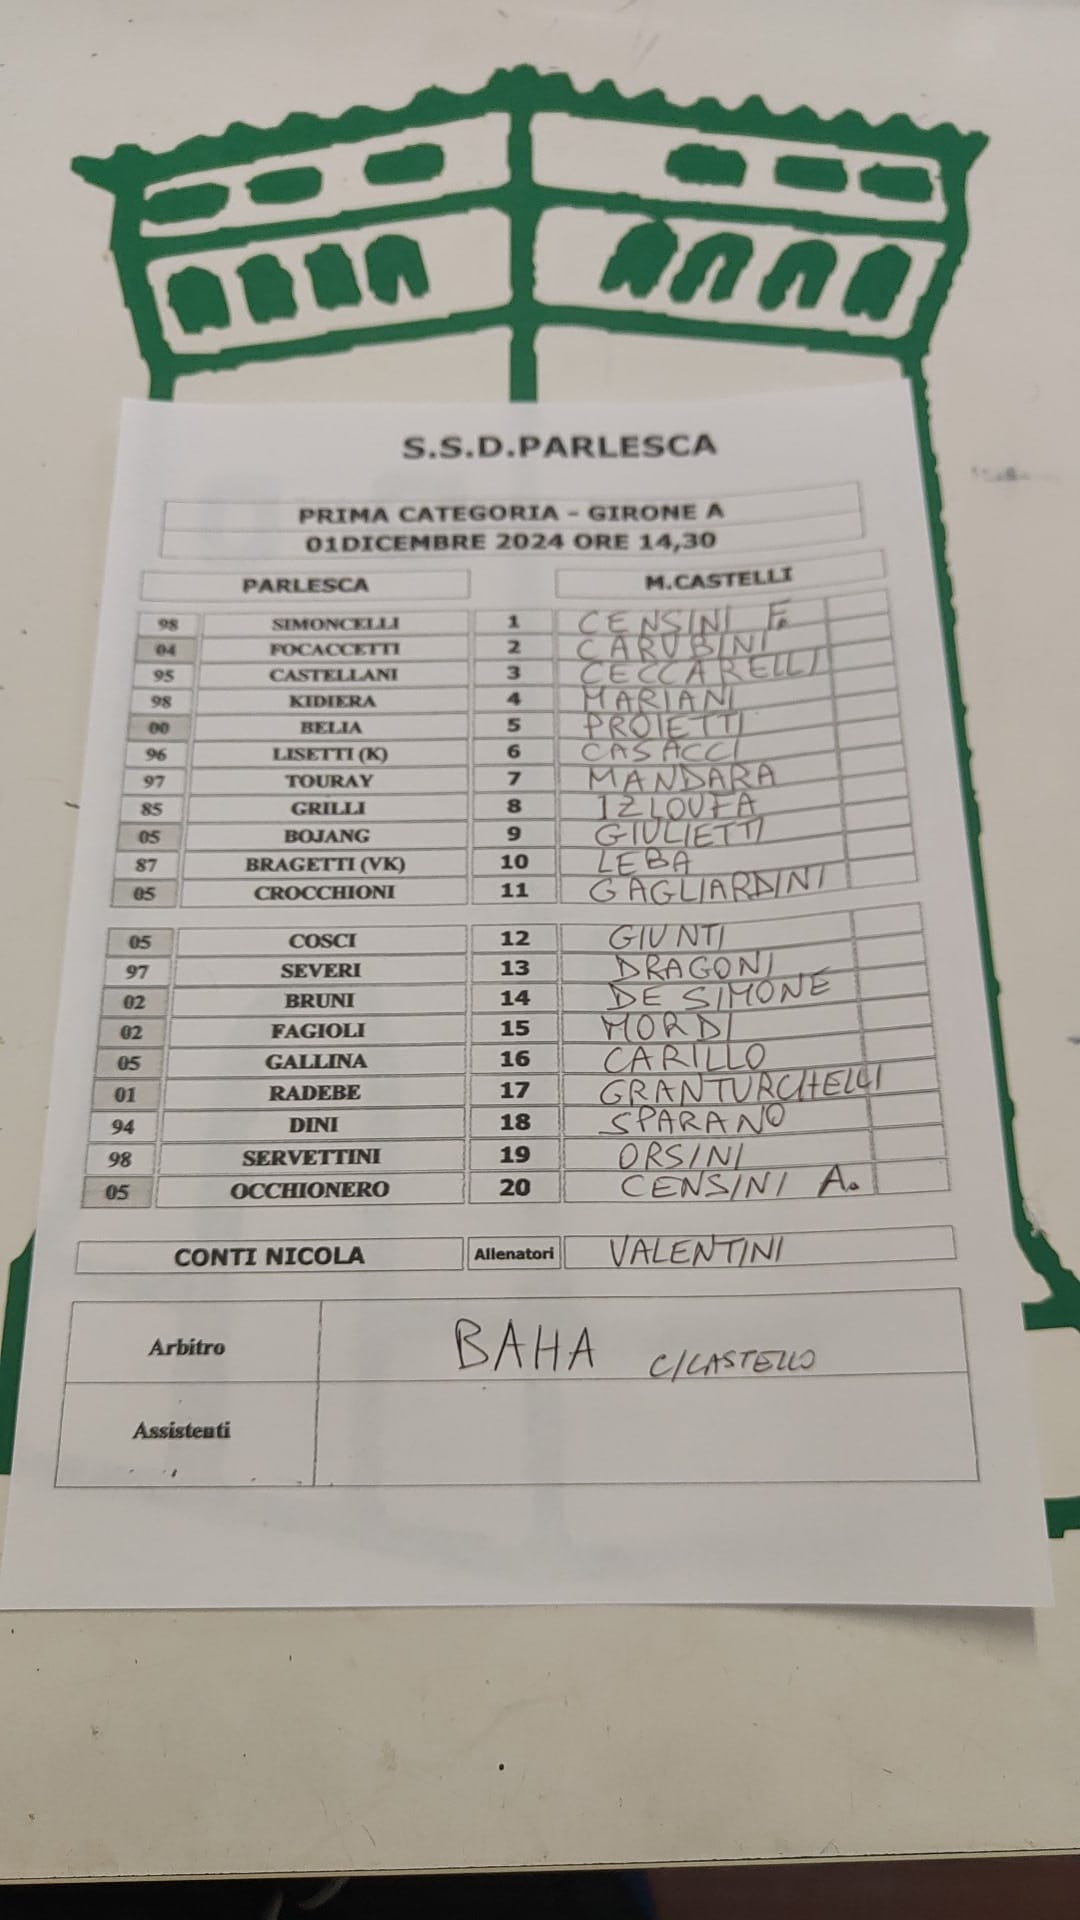 S.S.D.PARLESCA
PRIMA CATEGORIA - GIRONE A
01DICEMBRE 2024 ORE 14,30
PARLESCA M.CASTELLI
98 SIMONCELLI 1 CENSINI F.
04 FOCACCETTI 2 CARUBINI
95 CASTELLANI 3 CECCARELLI
98 KIDIERA 4 MARIANI
00 BELIA 5 PROIETTI
96 LISETTI (K) 6 CASACCI
97 TOURAY 7 MANDARA
85 GRILLI 8 IZLOUFA
05 BOJANG 9 GIULIETTI
87 BRAGETTI (VK) 10 LEBA
05 CROCCHIONI 11 GAGLIARDINI
05 COSCI 12 GIUNTI
97 SEVERI 13 DRAGONI
02 BRUNI 14 DE SIMONE
02 FAGIOLI 15 MORDI
05 GALLINA 16 CARILLO
01 RADEBE 17 GRANTURCHELLI
94 DINI 18 SPARANO
98 SERVETTINI 19 ORSINI
05 OCCHIONERO 20 CENSINI A.
CONTI NICOLA Allenatori VALENTINI
Arbitro BAHA C/CASTELLO
Assistenti